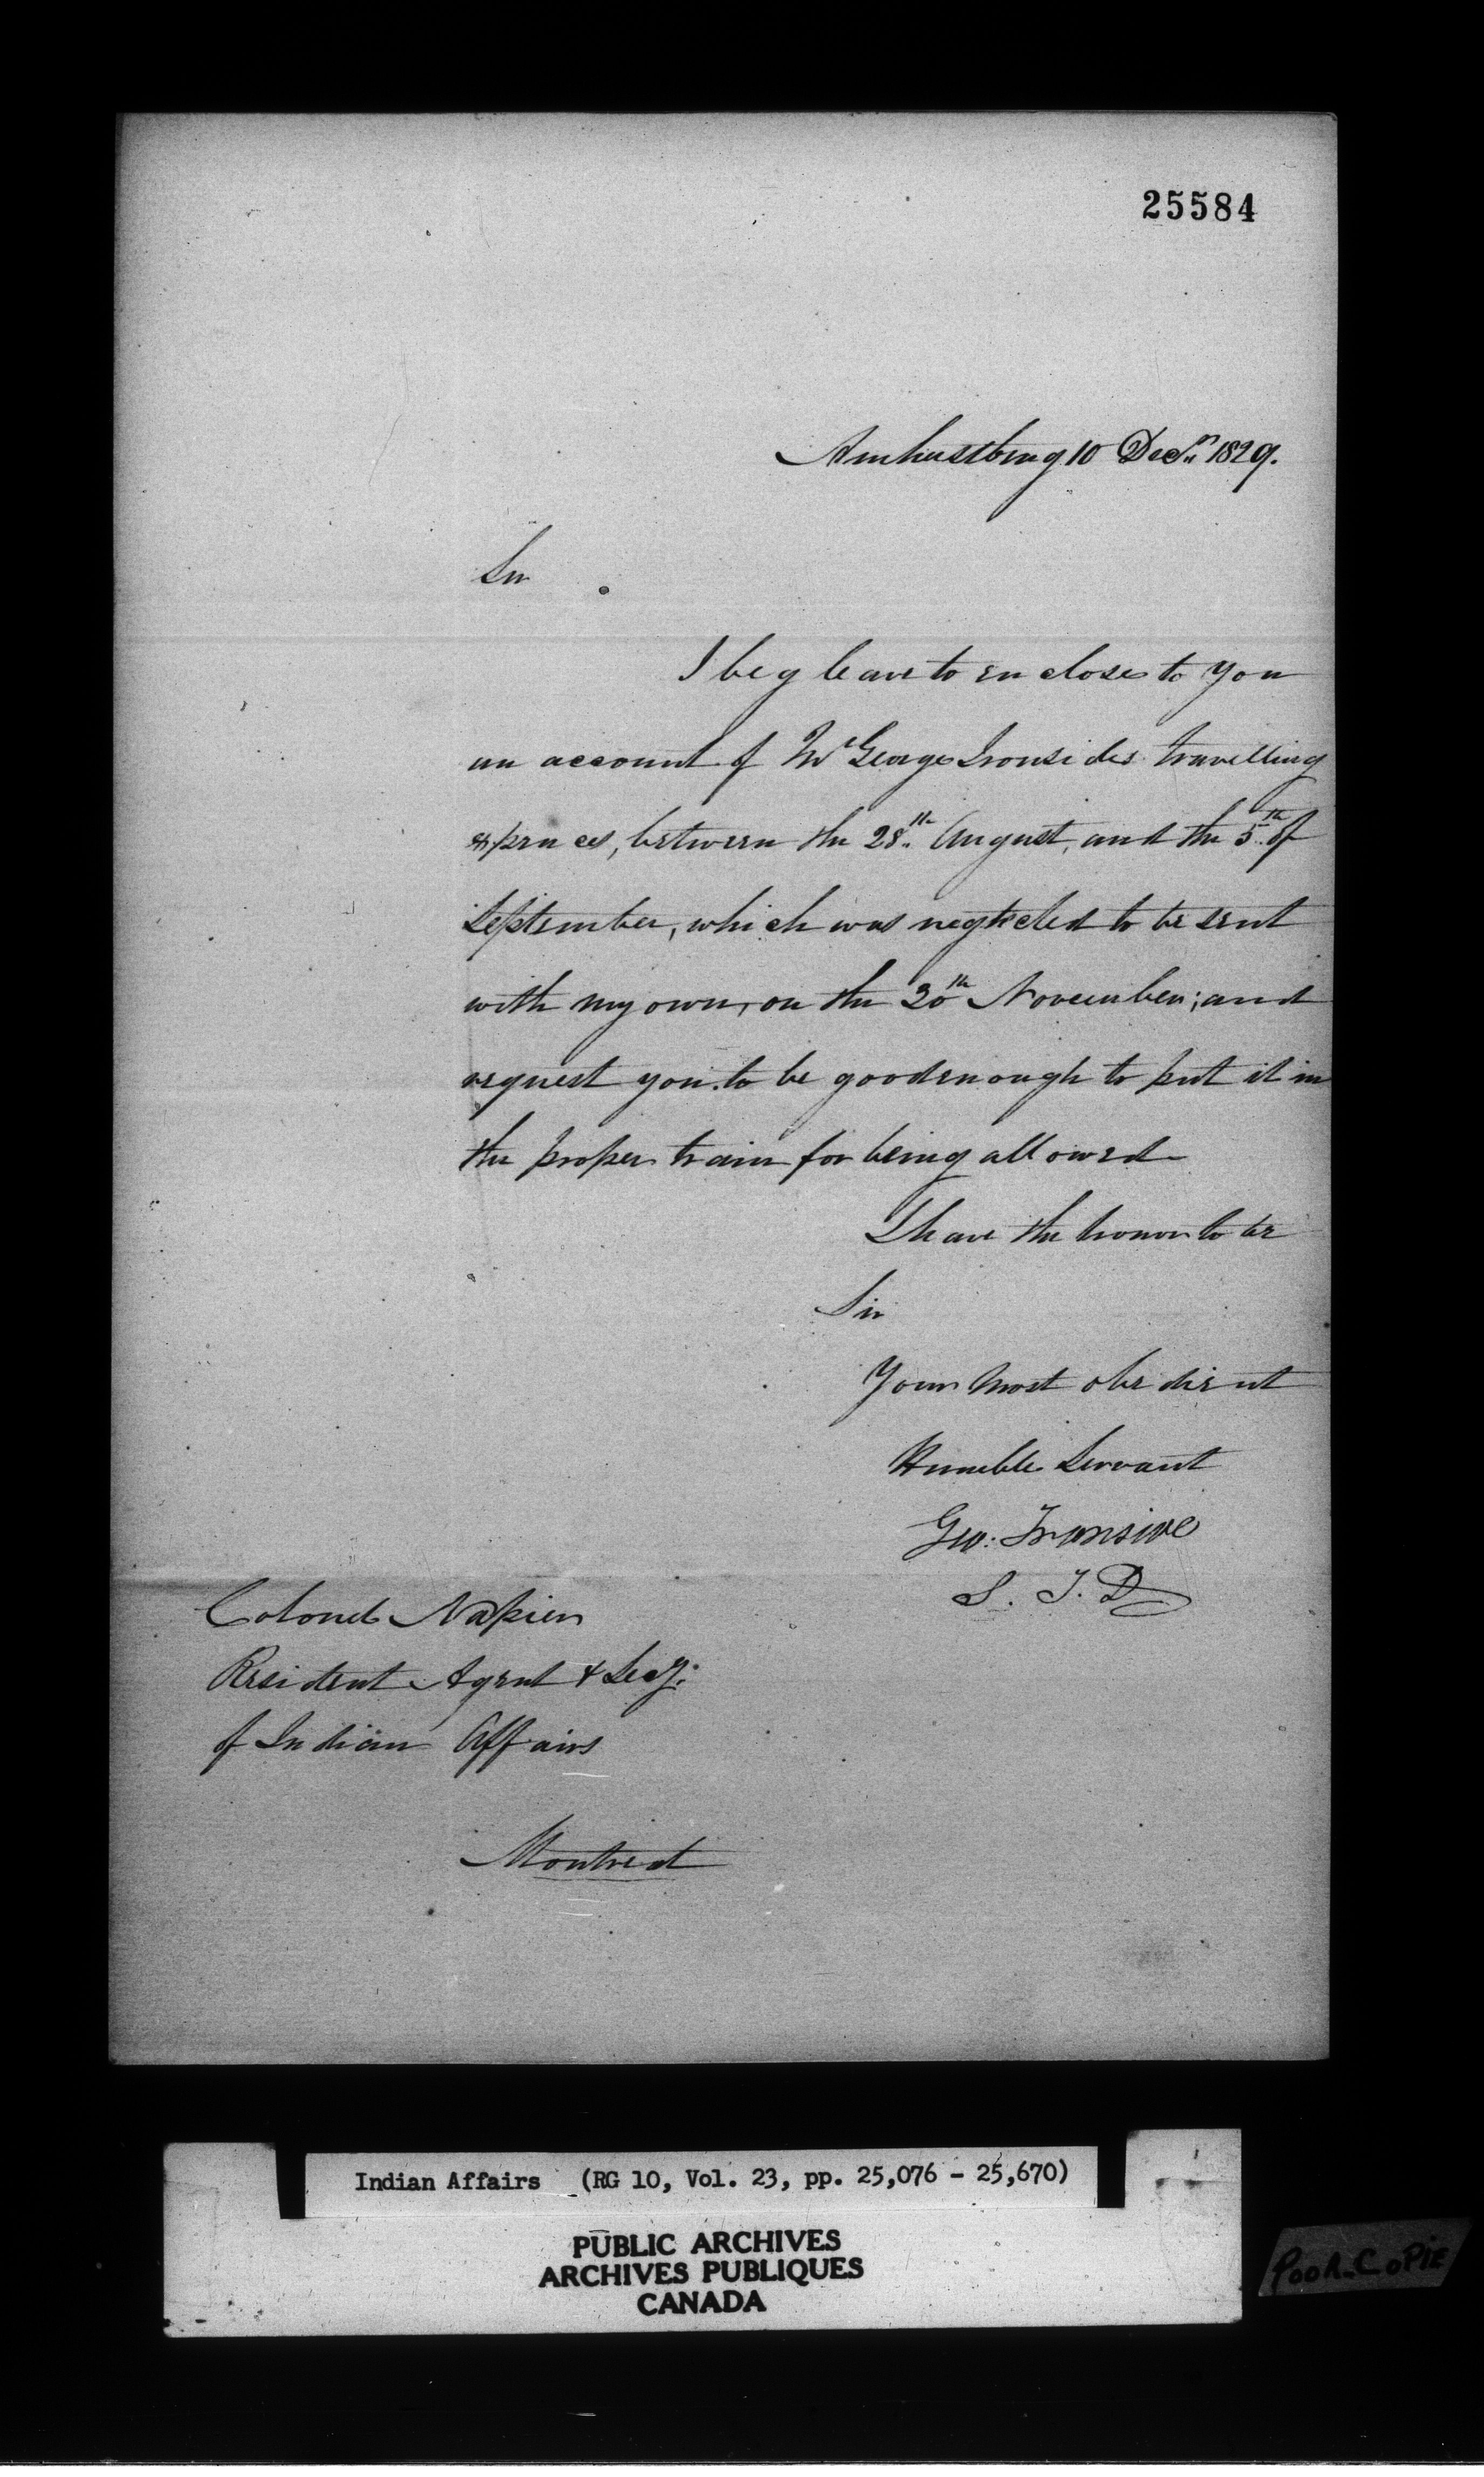 25584
Amherstburg 10 Decr. 1829.
Sir
I beg leave to enclose to you
an account of Mr George Ironsides travelling
expences, between the 28th August, and the 5th of
September, which was neglected to be sent
with my own, on the 20th November; and
request you to be good enough to put it in
the proper train for being allowed
I have the honor to be
Sir
Your Most obedient
Humble Servant
Geo: Ironside
S. I. D
Colonel Napier
Resident Agent & Secy.
of Indian Affairs
Montreal
Indian Affairs (RG 10, Vol. 23, pp. 25,076 - 25,670)
PUBLIC ARCHIVES
ARCHIVES PUBLIQUES
CANADA
POOR COPIE